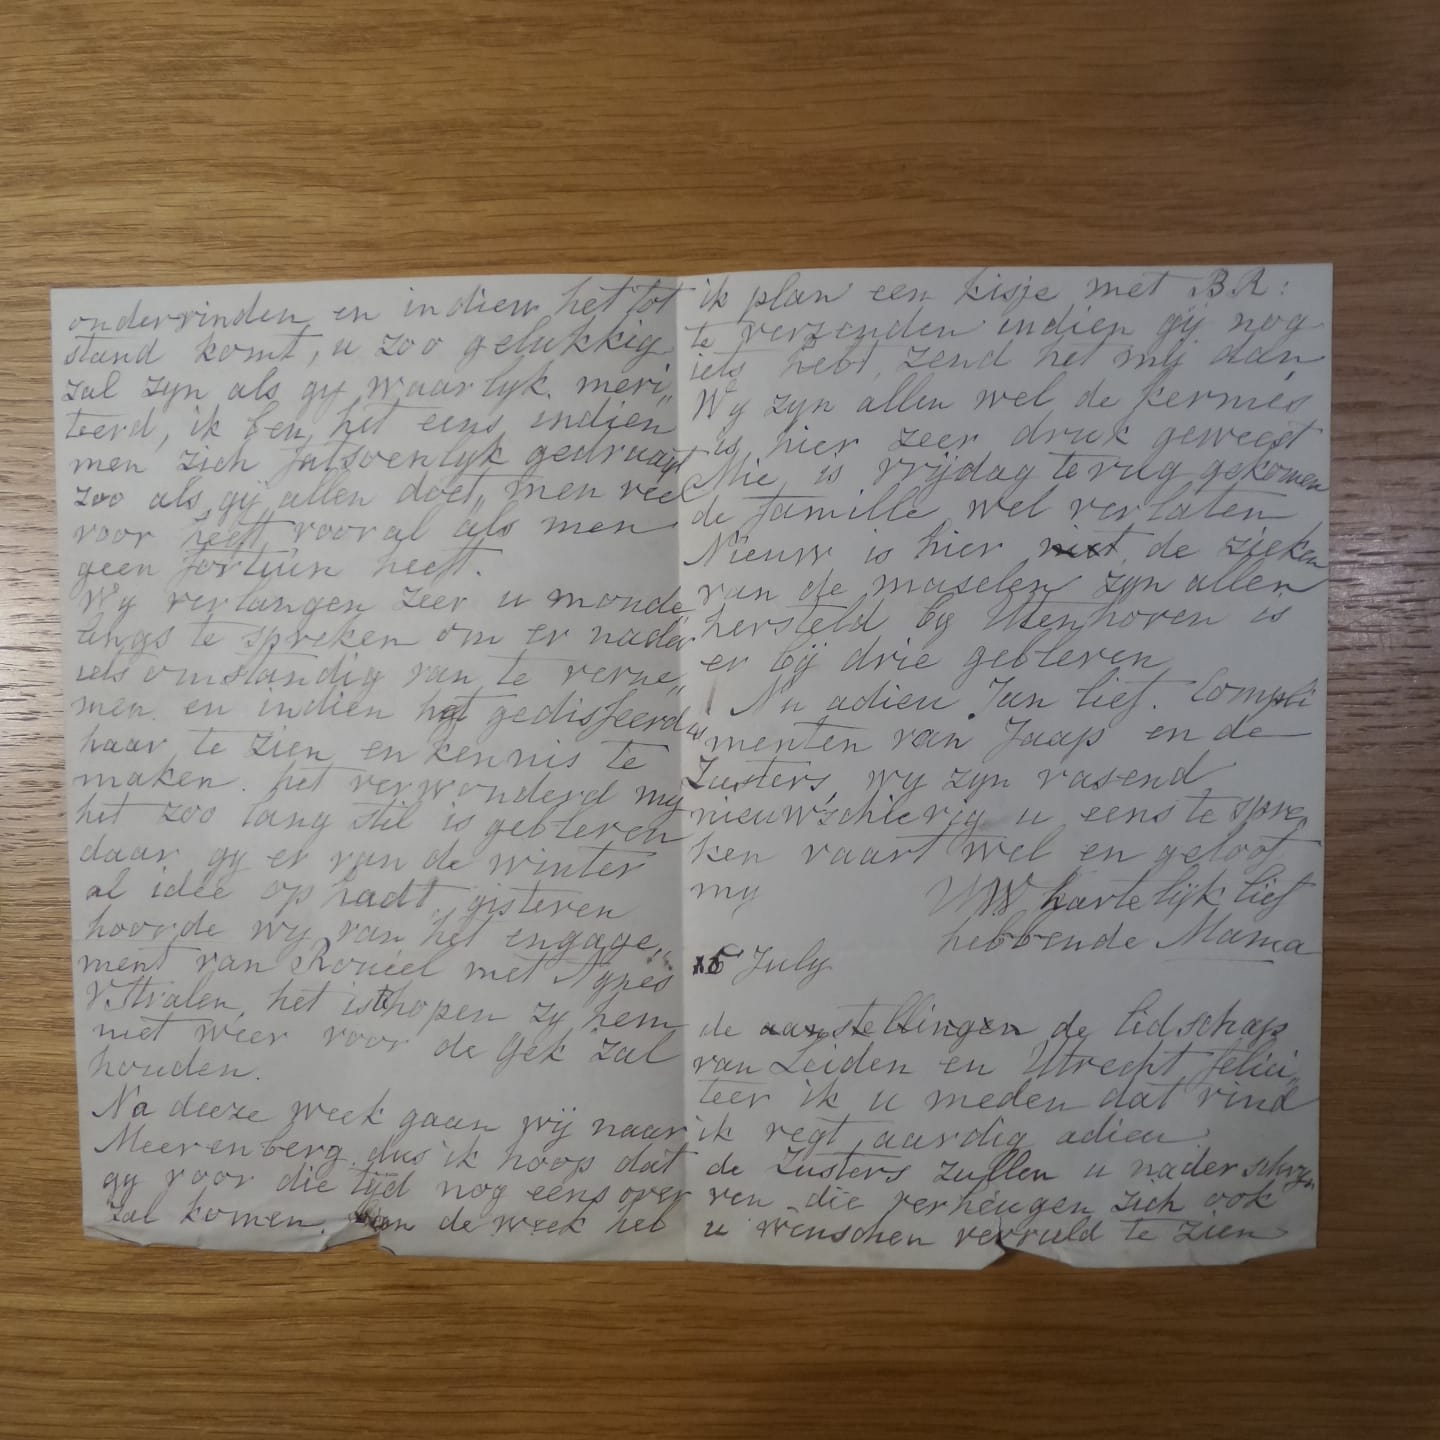 ondervinden en indien het tot
stand komt, u zoo gelukkig
zal zyn als gy waarlyk meri„
teerd, ik ben het eens indien
men zich fatsoenlyk gedraagt
zoo als gij allen doet, men veel
voor heeft vooral als men
geen fortuin heeft.
Wy verlangen zeer u monde
lings te spreken om er nader
iets omstandig van te verne„
men en indien het gedisfeerd is
haar te zien en kennis te
maken. het verwonderd my
het zoo lang stil is gebleven
daar gy er van de winter
al idée op hadt, gisteren
hoorde wy van het engage„
ment van Roüel met Agnes
V Stralen, het is te hopen zy hem
niet weer voor de gek zal
houden.
Na deeze week gaan wij naar
Meerenberg dus ik hoop dat
gy voor die tijd nog eens over
zal komen, van de week heb
ik plan een kisje met B R:
te verzenden indien gij nog
iets hebt, zend het mij dan,
Wy zyn allen wel de kermes
is hier zeer druk geweest
Mie is vrijdag terug gekomen
de famille wel verlaten
Nieuw is hier niet, de zieken
van de maselen zyn allen
hersteld by Utenhoven is
er bij drie gebleven
Nu adieu Jan lief. Compli
menten van Jaap en de
Zusters, wy zyn rasend
nieuwschierig u eens te spre„
ken vaart wel en geloof
my UW hartelijk lief
hebbende Mama
15 July
de aanstellingen de lidschap
van Leiden en Utrecht felici„
teer ik u meden dat vind
ik regt aardig adieu
de Zusters zullen u nader schry
ven die verheugen zich ook
u wenschen vervuld te zien